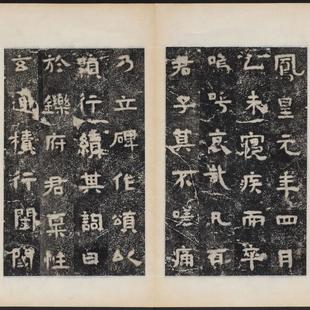 鳳皇元年四月
乙未寢疾而卒
嗚呼哀哉凡百
君子莫不嗟痛
乃立碑作頌以
顯行績其詞曰
於鑠府君稟性
玄通積行閨